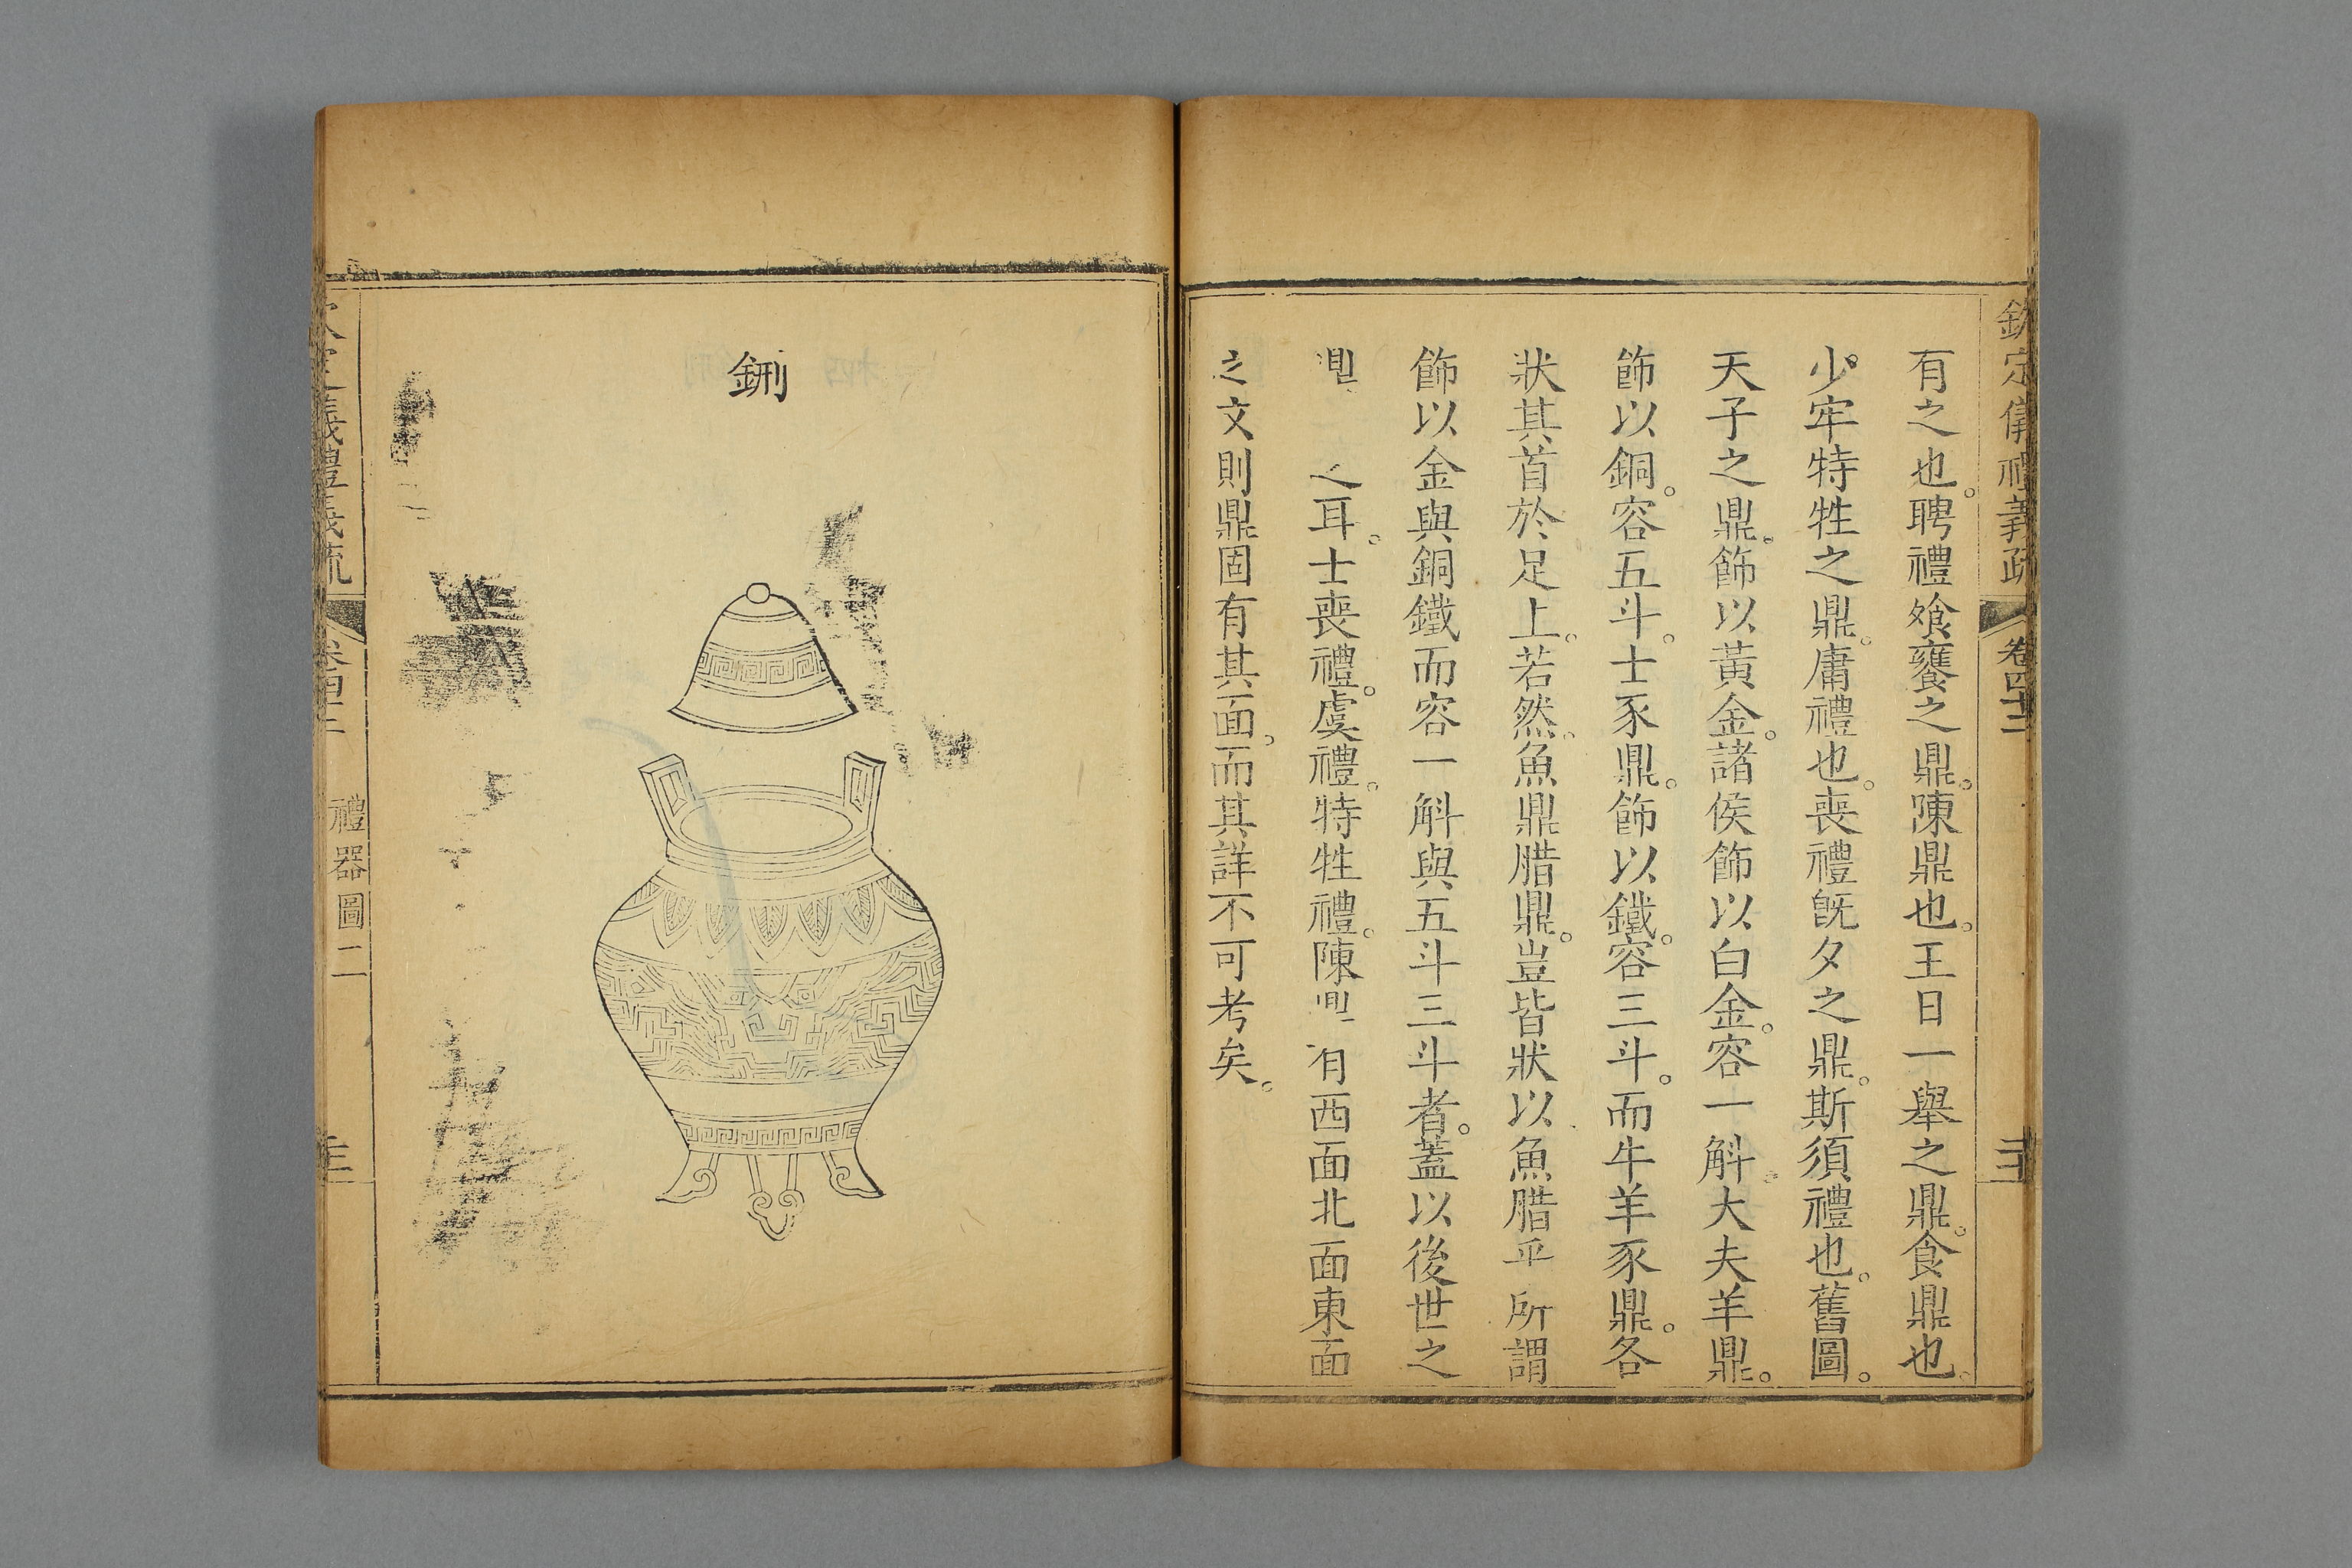 欽定儀禮義疏 卷四十二
有之也。聘禮飧饔之鼎。陳鼎也。王日一舉之鼎。食鼎也。
少牢特牲之鼎。庸禮也。喪禮旣夕之鼎。斯須禮也。舊圖。
天子之鼎。飾以黃金。諸侯飾以白金。容一斛。大夫羊鼎。
飾以銅。容五斗。士豕鼎。飾以鐵。容三斗。而牛羊豕鼎。各
狀其首於足上。若然。魚鼎腊鼎。豈皆狀以魚腊乎所謂
飾以金與銅鐵而容一斛與五斗三斗者。蓋以後世之
之耳。士喪禮。虞禮。特牲禮。陳有西面北面東面
之文則鼎固有其面。而其詳不可考矣。
鉶
欽定儀禮義疏 卷四十二 禮器圖二